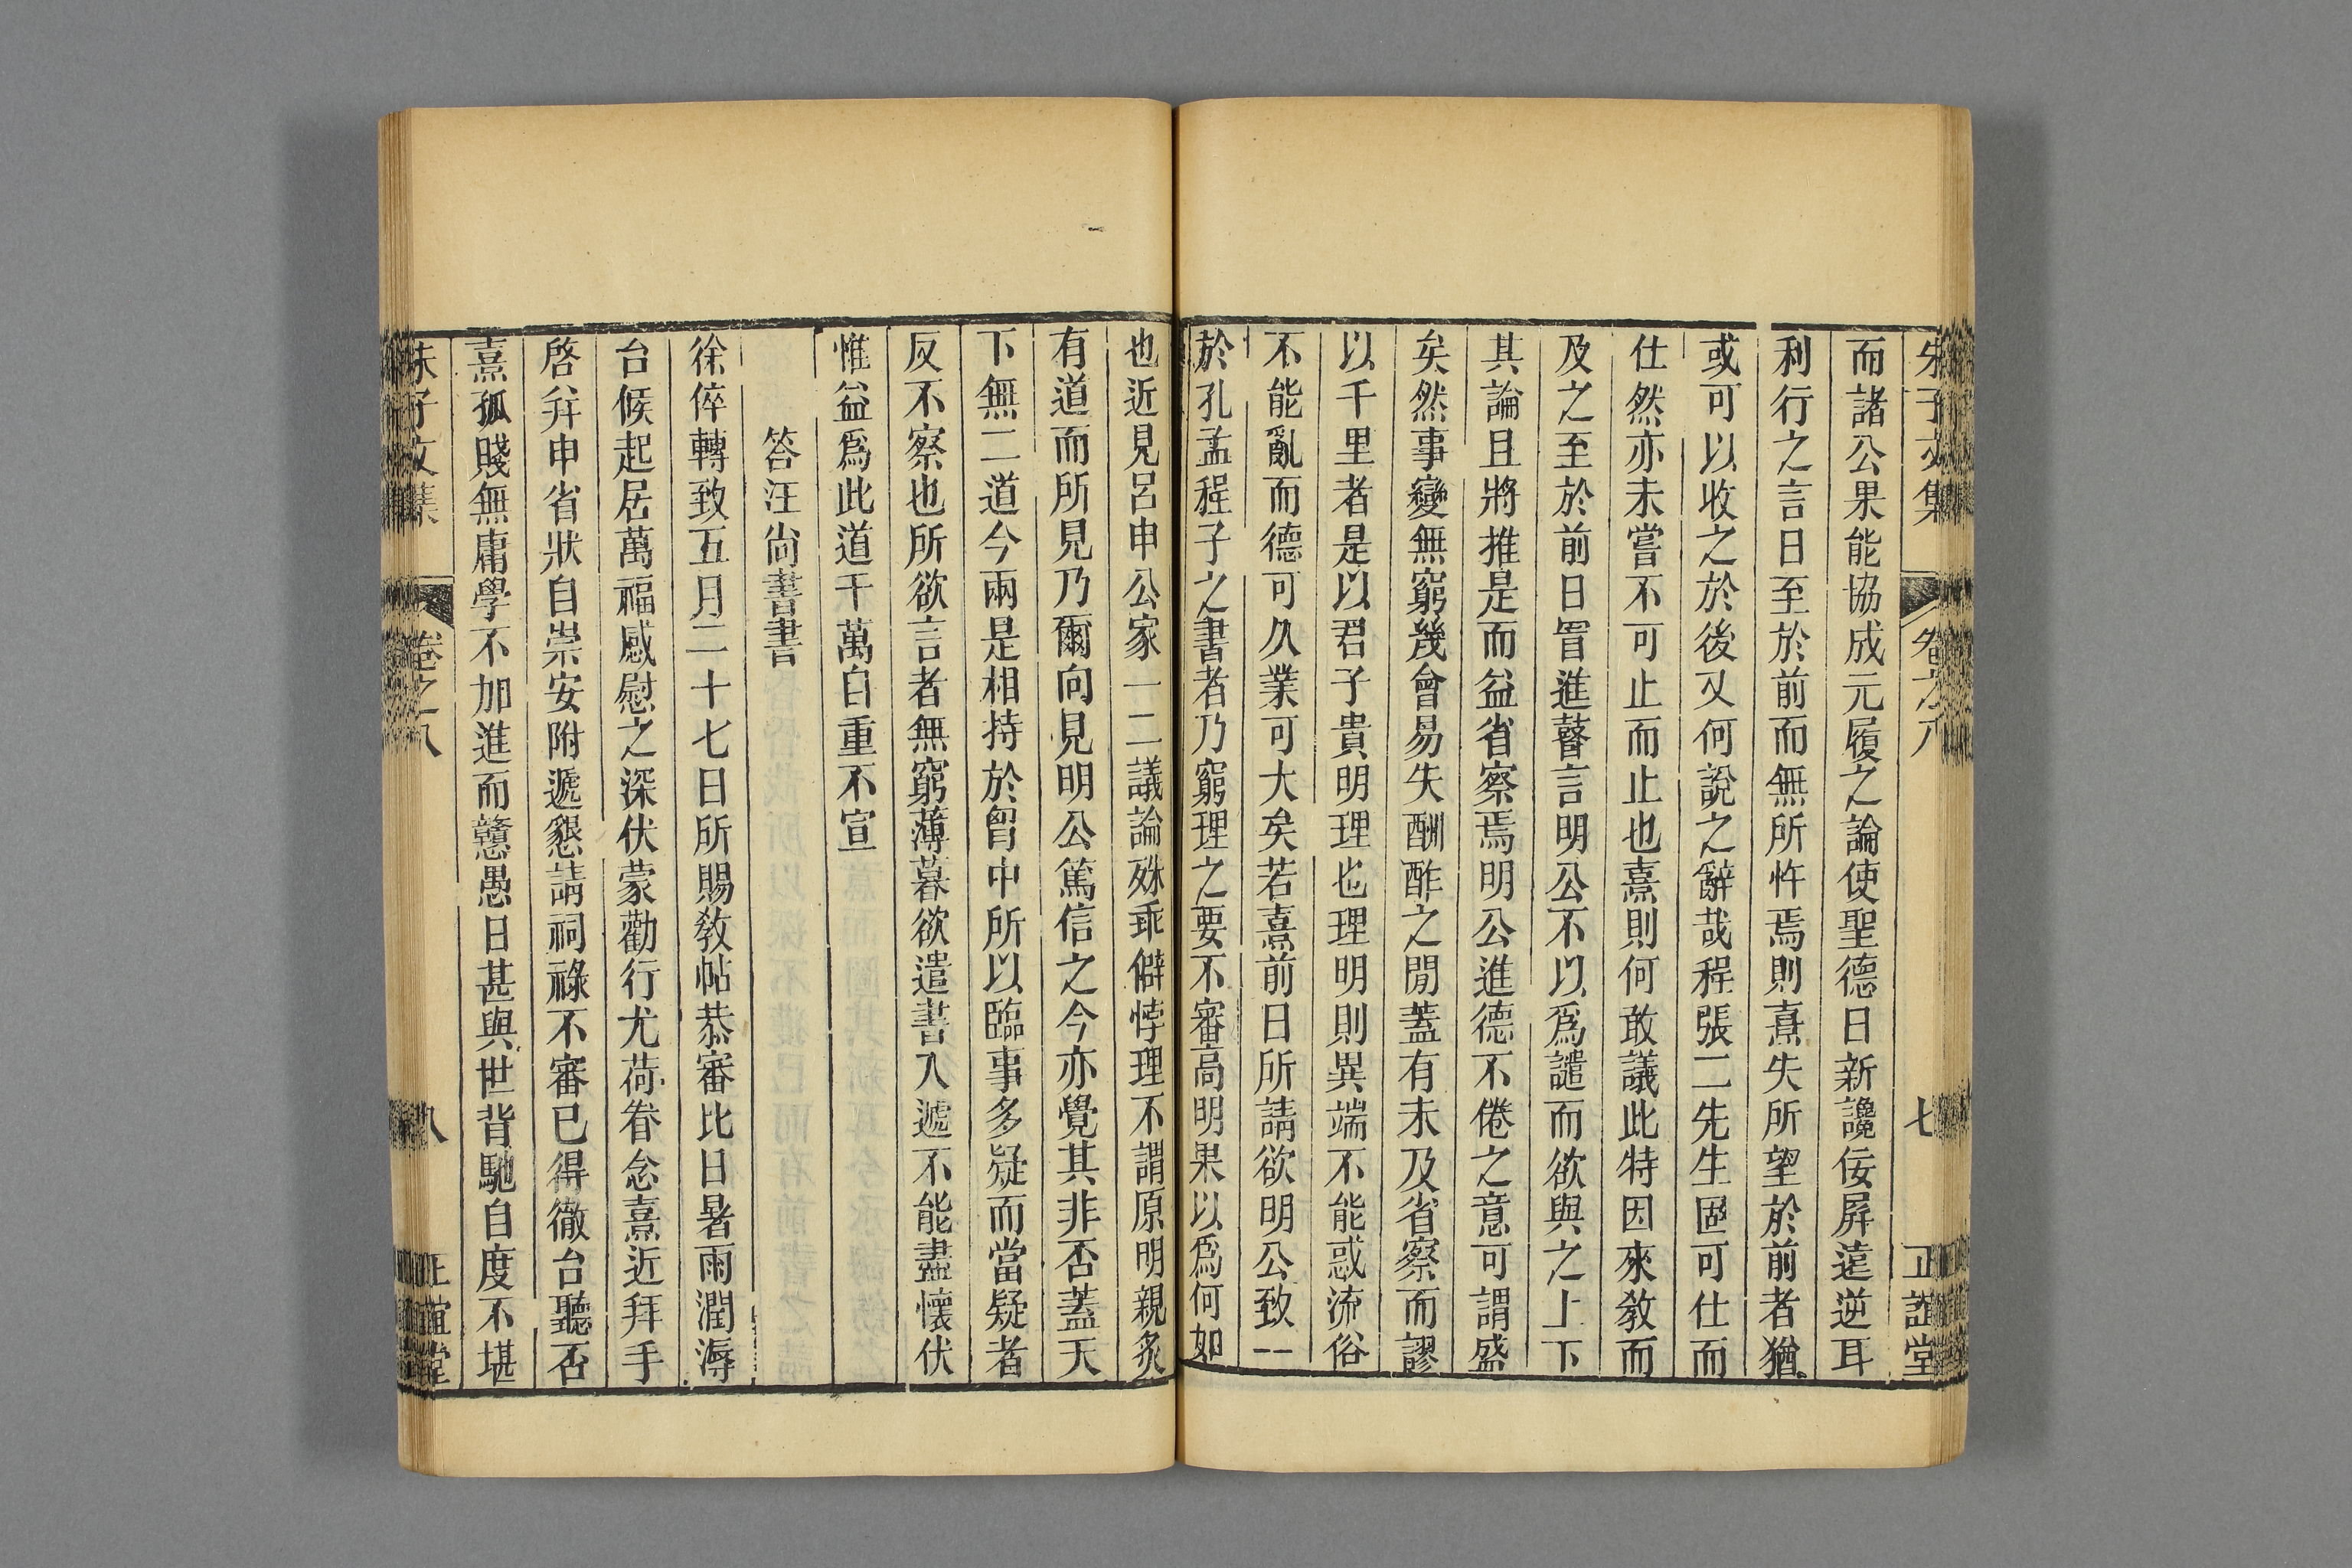 朱子文集 卷之八 七 正誼堂
而諸公果能協成元履之論使聖德日新讒佞屏遠逆耳
利行之言日至於前而無所忤焉則熹失所望於前者猶
或可以收之於後又何說之辭哉程張二先生固可仕而
仕然亦未嘗不可止而止也熹則何敢議此特因來教而
及之至於前日冒進瞽言明公不以爲譴而欲與之上下
其論且將推是而益省察焉明公進德不倦之意可謂盛
矣然事變無窮幾會易失酬酢之閒蓋有未及省察而謬
以千里者是以君子貴明理也理明則異端不能惑流俗
不能亂而德可久業可大矣若熹前日所請欲明公致一
於孔孟程子之書者乃窮理之要不審高明果以爲何如
也近見呂申公家一二議論殊乖僻悖理不謂原明親炙
有道而所見乃爾向見明公篤信之今亦覺其非否蓋天
下無二道今兩是相持於胷中所以臨事多疑而當疑者
反不察也所欲言者無窮薄暮欲遣書入遞不能盡懷伏
惟益爲此道千萬自重不宣
答汪尙書書
徐倅轉致五月二十七日所賜敎帖恭審比日暑雨潤溽
台候起居萬福感慰之深伏蒙勸行尤荷眷念熹近拜手
啓幷申省狀自崇安附遞懇請祠祿不審已得徹台聽否
熹孤賤無庸學不加進而戇愚日甚與世背馳自度不堪
朱子文集 卷之八 八 正誼堂